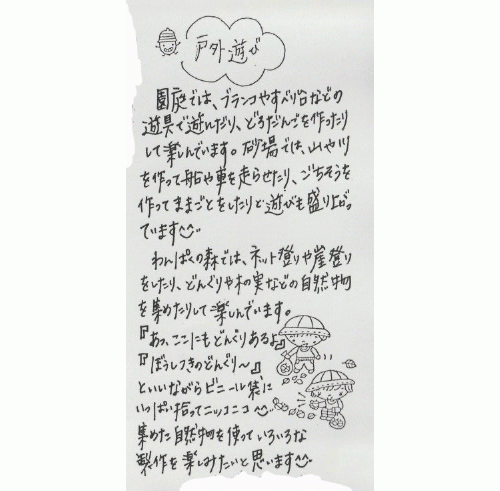 戸外遊び
園庭では、ブランコやすべり台などの
遊具で遊んだり、どろだんごを作ったり
して楽しんでいます。砂場では、山や川
を作って船や車を走らせたり、ごちそうを
作ってままごとをしたりと遊びも盛り上がっ
ています
わんぱくの森では、ネット登りや崖登り
をしたり、どんぐりや木の実などの自然物
を集めたりして楽しんでいます。
『あっ、ここにもどんぐりあるよ』
『ぼうしつきのどんぐり～』
といいながらビニール袋に
いっぱい拾ってニッコニコ
集めた自然物を使っていろいろな
製作を楽しみたいと思います